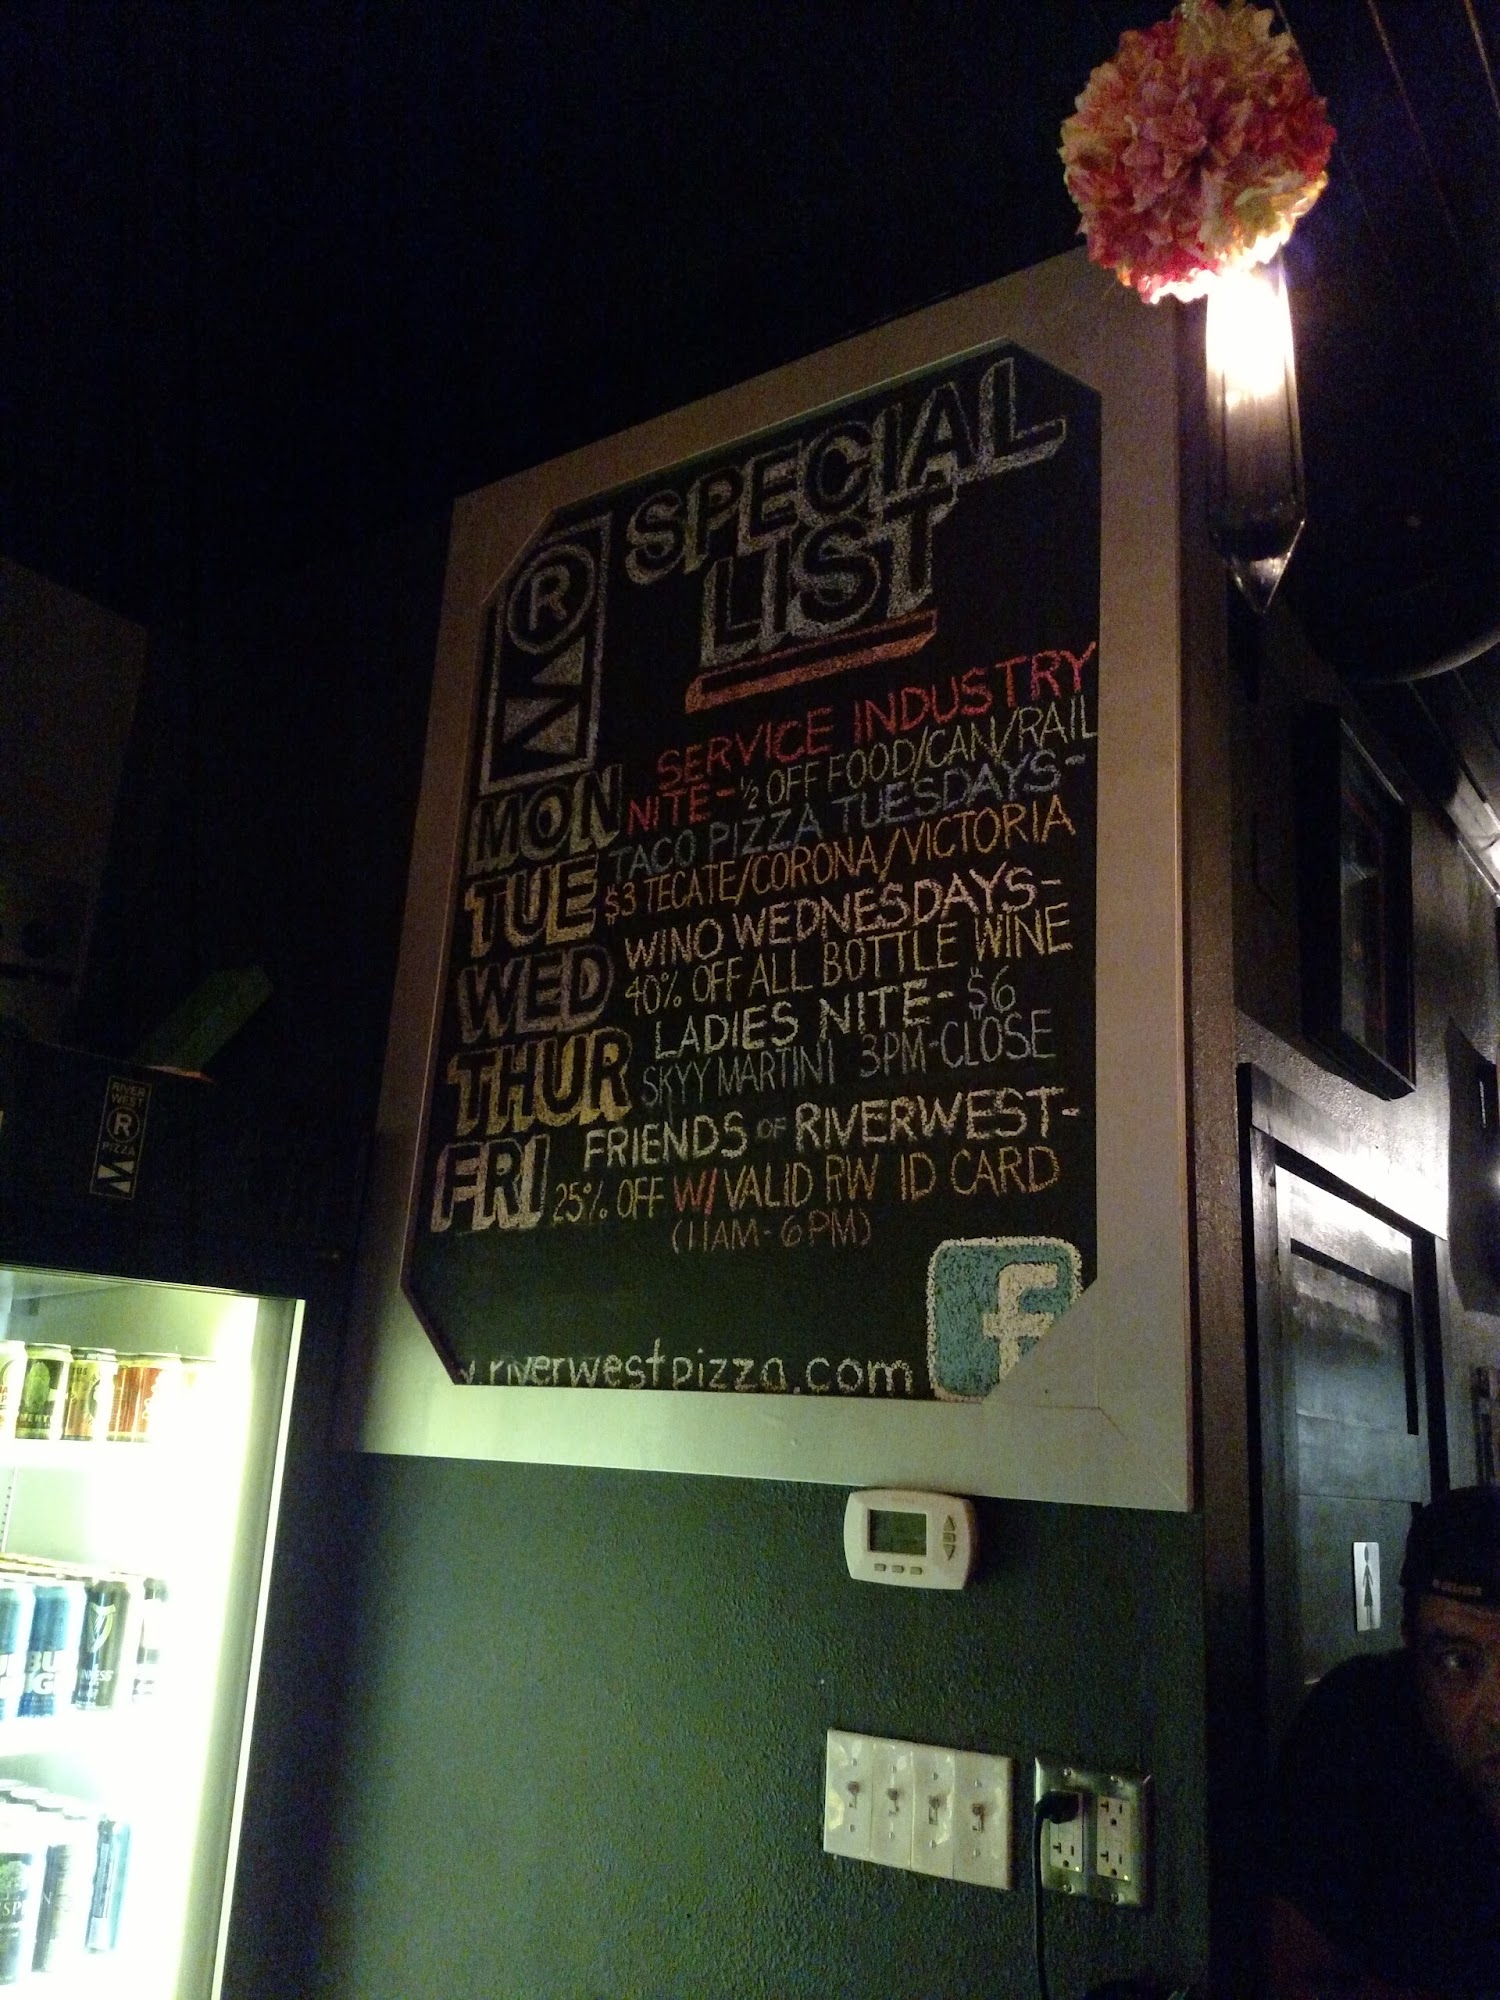 SPECIAL
LIST
R
MON
SERVICE INDUSTRY
NITE - 1/2 OFF FOOD/CAN/RAIL
TUE
TACO PIZZA TUESDAYS -
$3 TECATE/CORONA/VICTORIA
WED
WINO WEDNESDAYS -
40% OFF ALL BOTTLE WINE
THUR
LADIES NITE - $6
SKYY MARTINI 3PM-CLOSE
FRI
FRIENDS OF RIVERWEST -
25% OFF W/ VALID RW ID CARD
(11AM - 6PM)
.riverwestpizza.com
f
RIVER
WEST
R
PIZZA